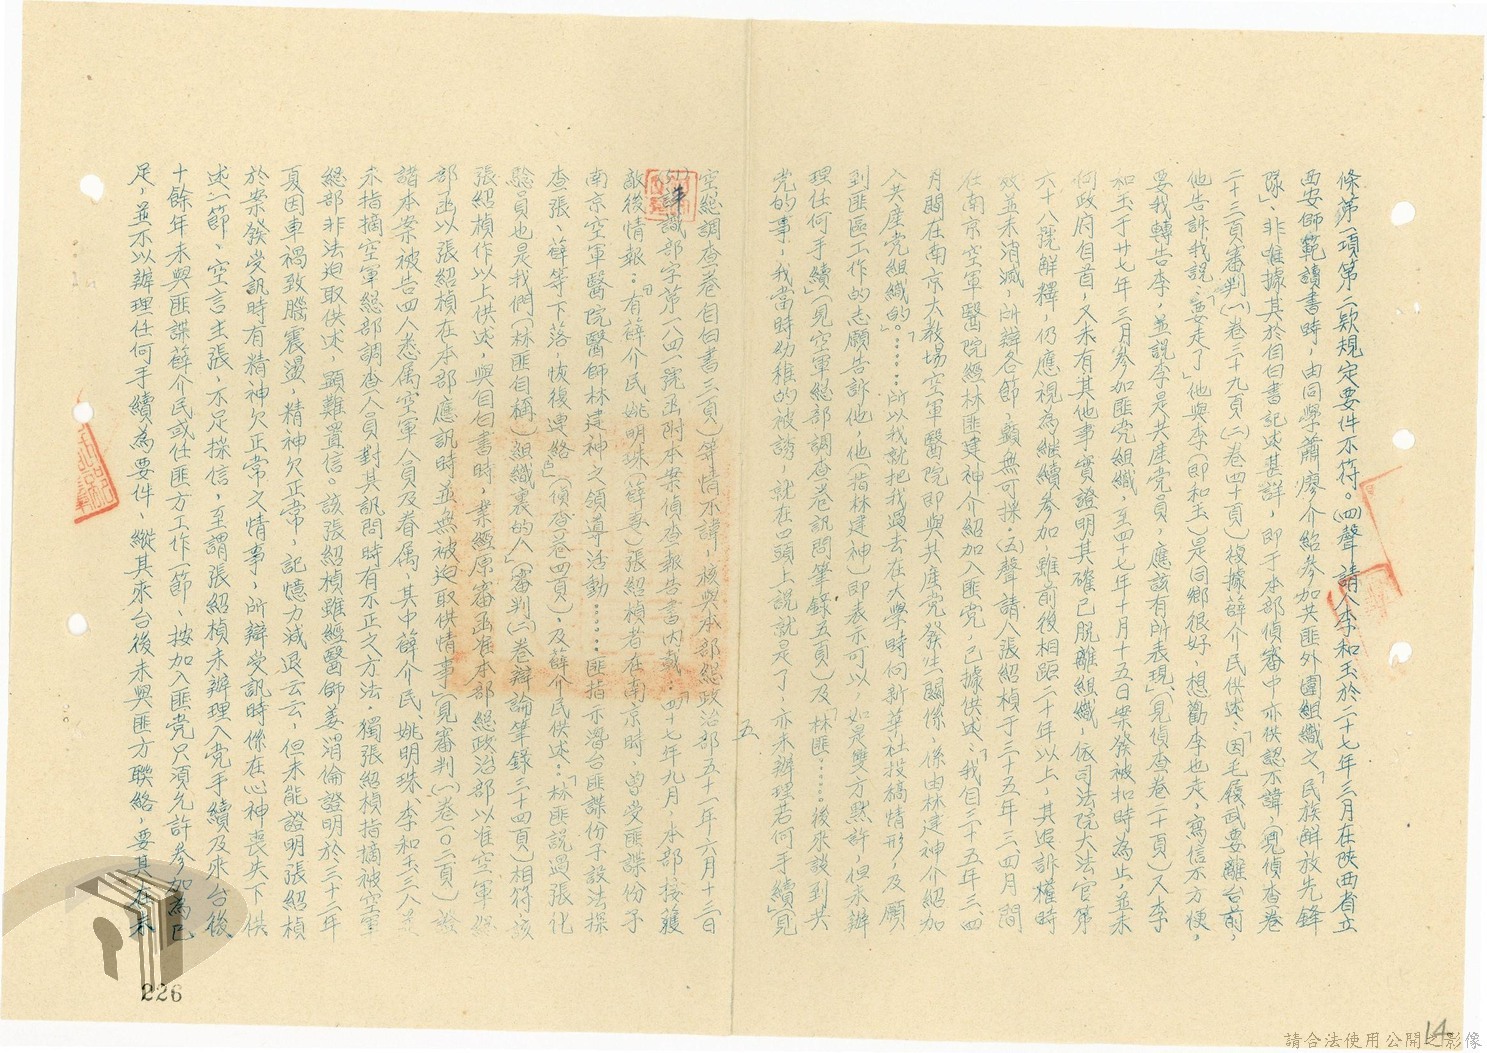 條第一項第二欵規定要件不符。(四)聲請人李和玉於二十七年三月在陝西省立
西安師範讀書時，由同學蕭廖介紹參加共匪外圍組織之「民族解放先鋒
隊」，非惟據其於自白書記述甚詳，即于本部偵審中亦供認不諱，(見偵查卷
二十三頁審判(一)卷三十九頁(二)卷四十頁)復據薛介民供述：「因毛履武要離台前，
他告訴我說：「要走了」他與李(即和玉)是同鄉很好，想勸李也走，寫信不方便，
要我轉告李，並說李是共產党員，應該有所表現」(見偵查卷二十頁)又李
和玉于廿七年三月參加匪党組織，至四十七年十月十五日案發被扣時為止，並未
向政府自首，又未有其他事實證明其確已脫離組織，依司法院大法官第
六十八號解釋，仍應視為繼續參加，雖前後相距二十年以上，其追訴權時
效並未消滅，所辯各節，顯無可採。(五)聲請人張紹楨于三十五年三四月間
在南京空軍醫院經林匪建神介紹加入匪党，已據供述：「我自三十五年三、四
月間在南京大教場空軍醫院即與共產党發生關係，係由林建神介紹加
入共產党組織的。」……「所以我就把我過去在大學時向新華社投稿情形，及願
到匪區工作的志願告訴他，他(指林建神)即表示可以，如是雙方默許，但未辦
理任何手續」(見空軍總部調查卷訊問筆錄五頁)及「林匪……後來談到共
党的事，我當時幼稚的被誘，就在口頭上說就是了，亦未辦理若何手續」(見
五
空總調查卷自白書三頁)等情不諱，核與本部總政治部五十一年六月十三日
識部字第一八四一號函附本案偵查報告書內載：「四十七年九月，本部接獲
敵後情報：「有薛介民、姚明珠(薛妻)張紹楨者在南京時，曾受匪諜份子
南京空軍醫院醫師林建神之領導活動……匪指示潛台匪諜份子設法探
查張、薛等下落，恢復連絡」(偵查卷四頁)，及薛介民供述：「林匪說過張化
驗員也是我們(林匪自稱)組織裏的人」(審判(二)卷辯論筆錄三十四頁)相符，該
張紹楨作以上供述，與自白書時，業經原審函准本部總政治部以准空軍總
部函以張紹楨在本部應訊時，並無被迫取供情事」(見審判(一)卷一〇二頁)證
諸本案被告四人悉屬空軍人員及眷屬，其中薛介民、姚明珠、李和玉三人是
未指摘空軍總部調查人員對其訊問時有不正之方法，獨張紹楨指摘被空軍
總部非法迫取供述，顯難置信。該張紹楨雖經醫師姜渭倫證明於三十二年
夏因車禍致腦震盪，精神欠正常，記憶力減退云云，但未能證明張紹楨
於案發受訊時有精神欠正常之情事，所辯受訊時係在心神喪失下供
述一節，空言主張，不足採信，至謂張紹楨未辦理入党手續及來台後
十餘年未與匪諜薛介民或任匪方工作一節，按加入匪党只須允許參加為已
足，並不以辦理任何手續為要件，縱其來台後未與匪方聯絡，要其在未
226
14
請合法使用公開之影像